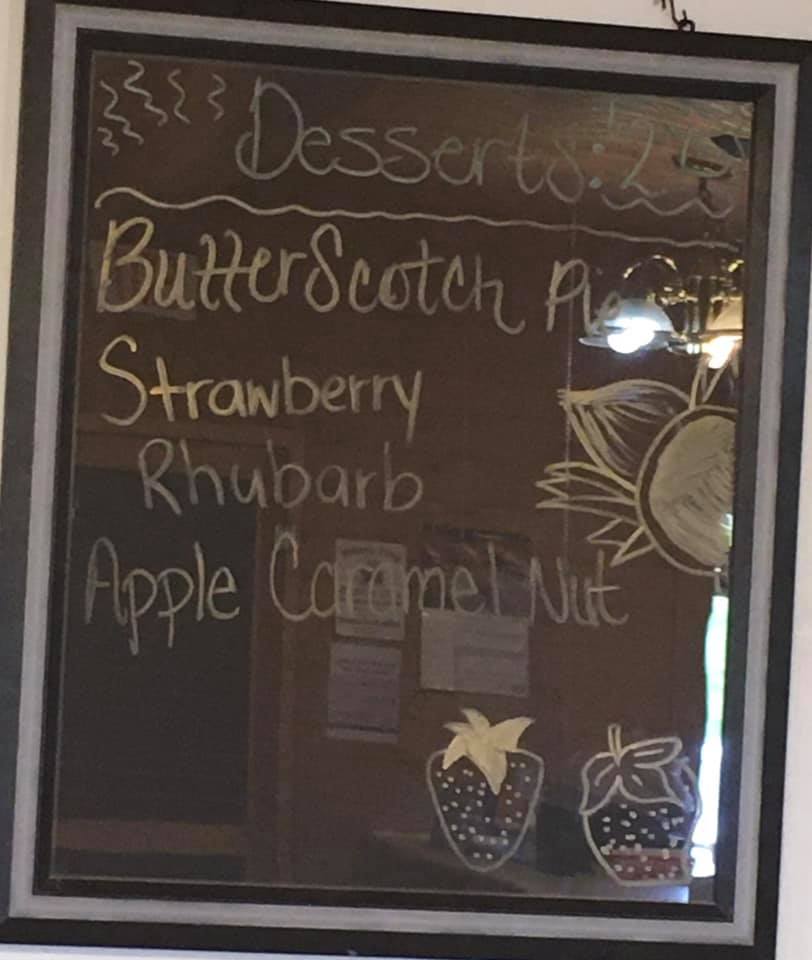 Desserts:
ButterScotch Pie
Strawberry
Rhubarb
Apple Caramel Nut